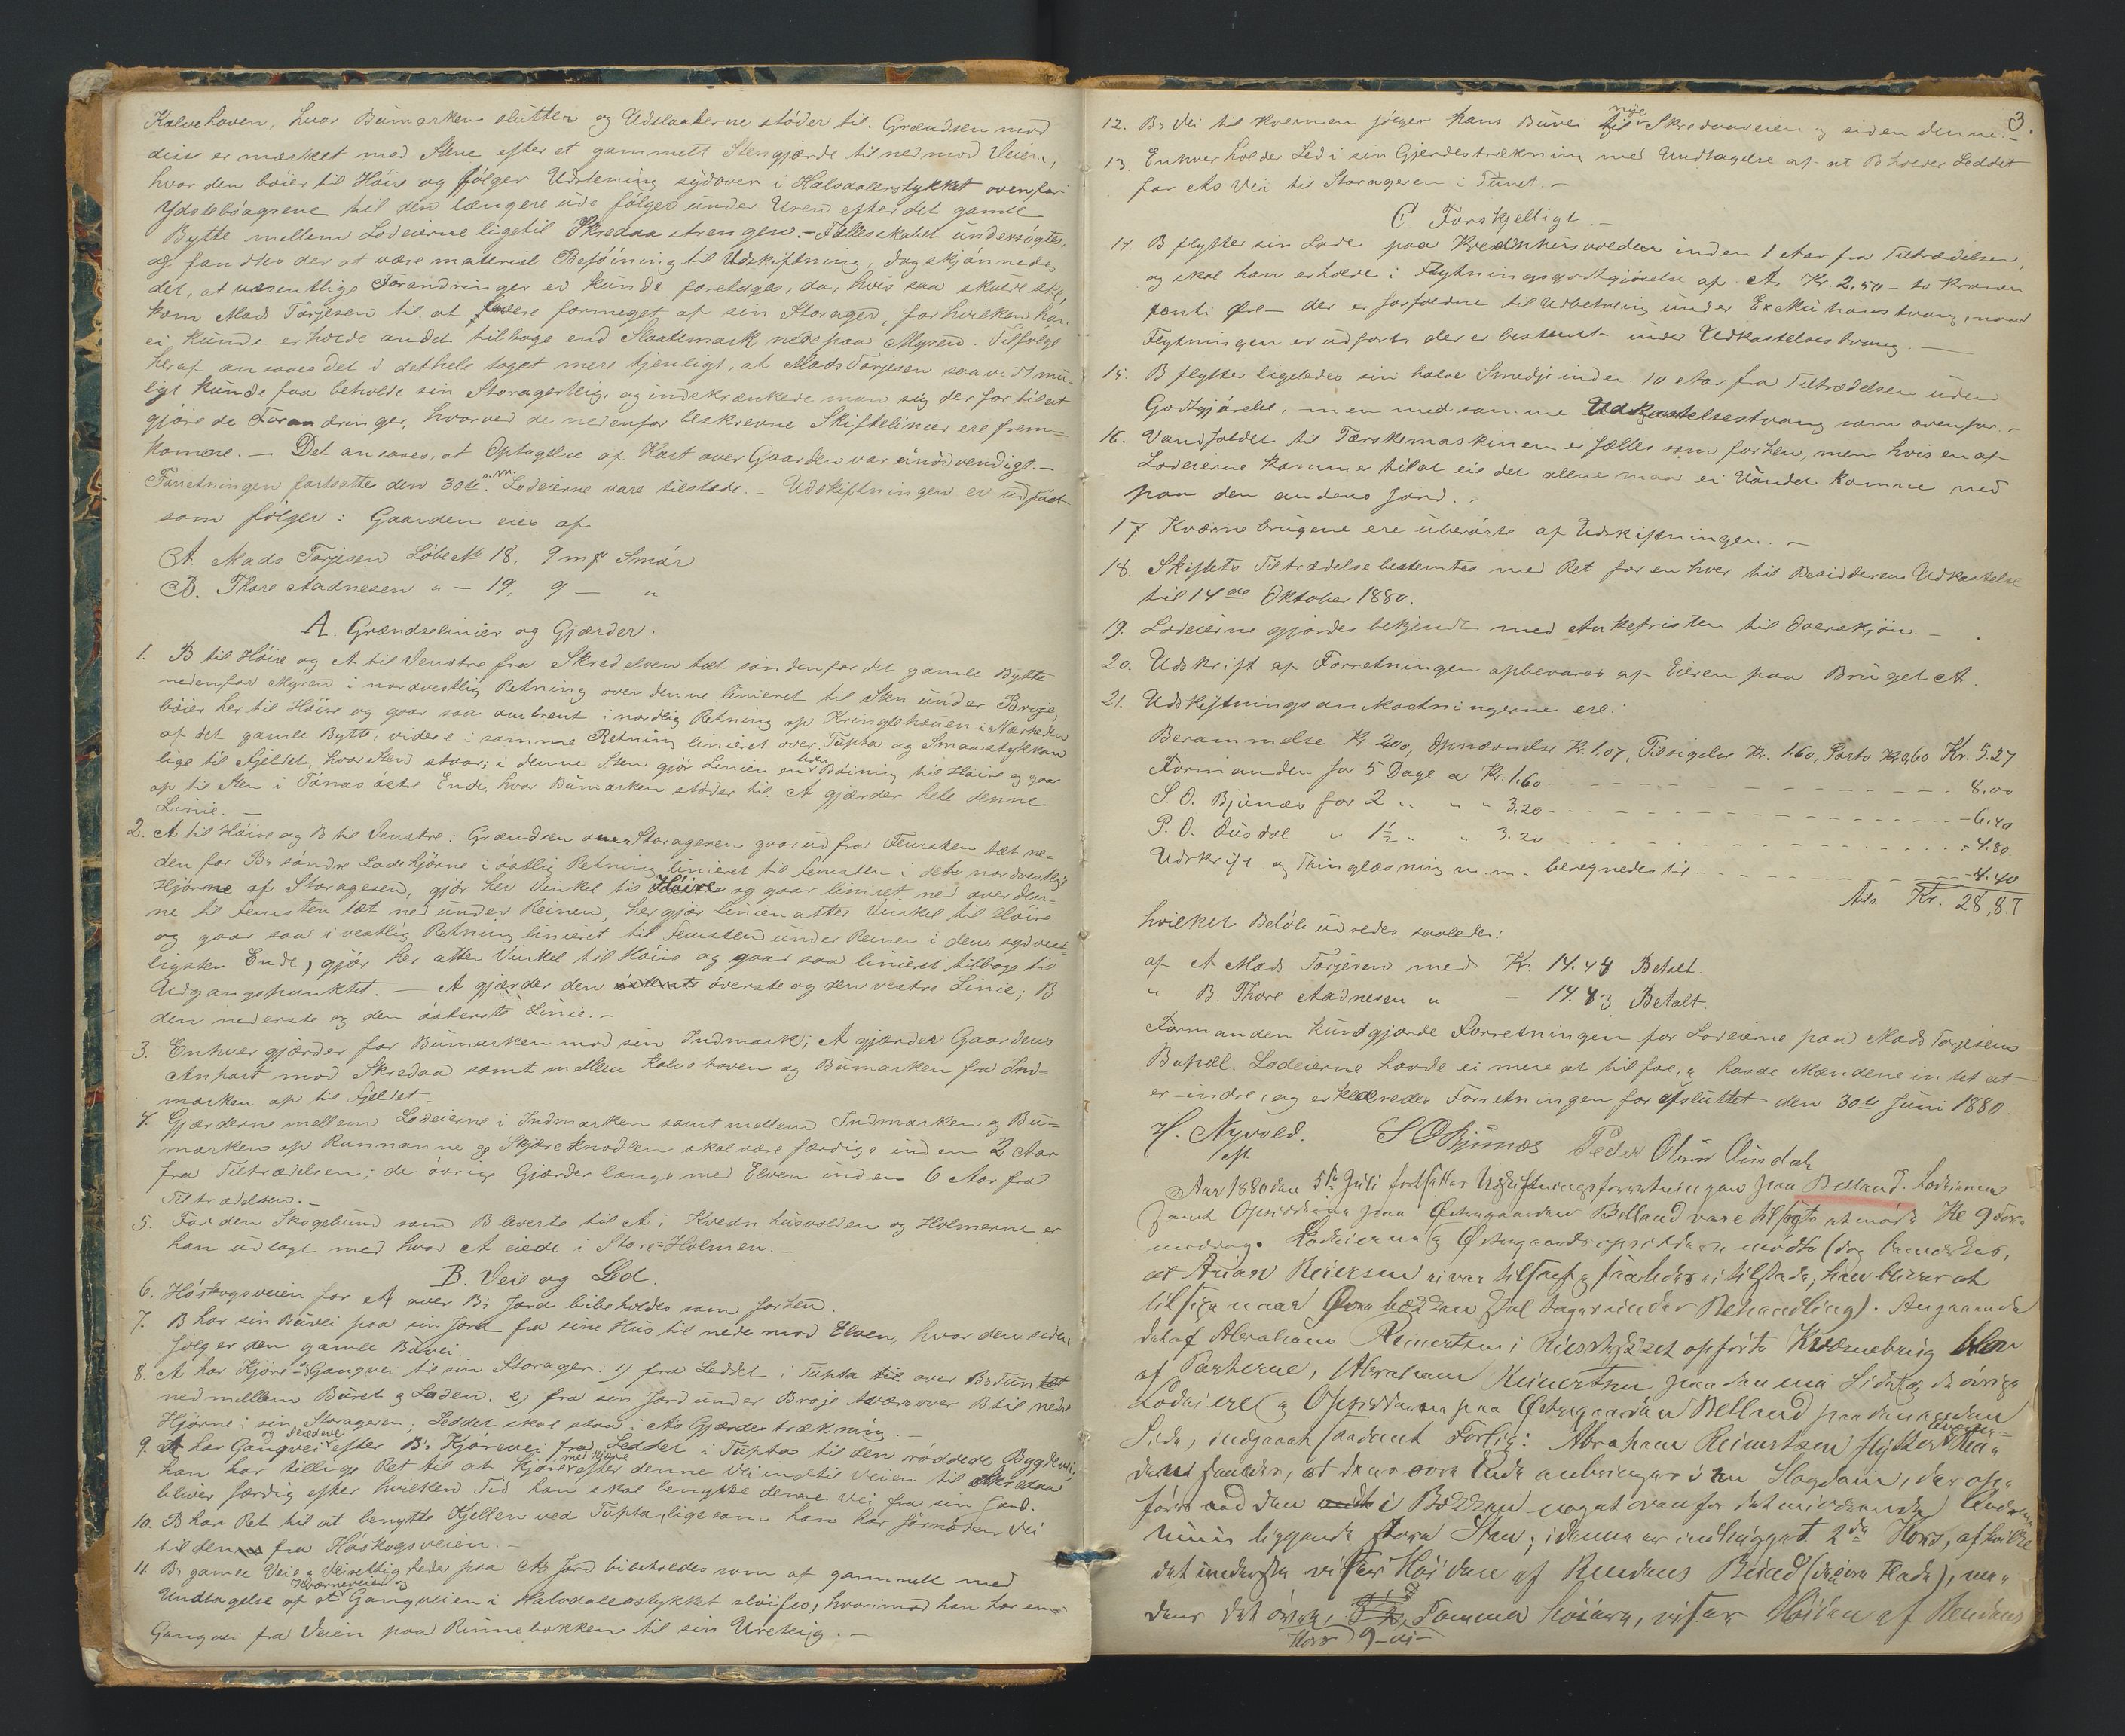 Kalvehaven, hvor Bumarken slutter og Udslaatterne støder til. Grændsen mod
disse er mærket med Stene efter et gammelt Stengjærde til ned mod Veien,
hvor den bøier til Høire og følger Udstening sydover i Halvdalerstykket ovenfor
Ydstebøagrene til den længere ude følger under Uren efter det gamle
Bytte mellem Lodeierne ligetil Skredaa strengen. - Fællesskabet undersøgtes,
og fandtes der at være materiel Beføining til Udskiftning, dog skjønnedes
det, at væsentlige Forandringer ei kunde foretages, da, hvis saa skulde ske,
kom Mads Torjesen til at formeget af sin Storager, for hvilken han
ei kunde erholde andet tilbage end Slaattemark nede paa Myren. Tilfølge
heraf ansaaes det i det hele taget mere tjenligt, at Mads Torjesen saavidt mu-
ligt kunde faa beholde sin Storagerteig, og indskrænkede man sig derfor til at
gjøre de Forandringer, hvorved de nedenfor beskrevne Skiftelinier ere frem-
komne. - Det ansaaes, at Optagelse af Kart over Gaarden var unødvendigt. -
Forretningen fortsatte den 30te a. m. Lodeierne vare tilstede. - Udskiftningen er udført
som følger: Gaarden eies af
A. Mads Torjesen Løbe No 18, 9 mrk Smør
B. Thore Aadnesen " - 19, 9 - "
A. Grændselinier og Gjærder:
1. B til Høire og A til Venstre fra Skredelven tæt søndenfor det gamle Bytte
nedenfor Myren i nordvestlig Retning over denne linieret til Sten under Broje,
bøier her til Høire og gaar saa omtrent i nordlig Retning op Kringlehauen i Nærheden
af det gamle Bytte, videre i samme Retning linieret over Tupta og Smaastykkerne
lige til Fjeldet, hvor Sten staar; i denne Sten gjør Linien en liden Bøining til Høire og gaar
op til Sten i Tonas østre Ende, hvor Bumarken støder til. A gjærder hele denne
Linie. -
2. A til Høire og B til Venstre: Grændsen om Storageren gaar ud fra Femsten tæt ne-
den for Bs søndre Ladehjørne i østlig Retning linieret til Femsten i dets nordvestlige
Hjørne af Storageren, gjør her Vinkel til Høire og gaar linieret ned over den-
ne til Femsten tæt ned under Reinen; her gjør Linien atter Vinkel til Høire
og gaar saa i vestlig Retning linieret til Femsten under Reinen i dens sydvest-
ligste Ende, gjør her atter Vinkel til Høire og gaar saa linieret tilbage til
Udgangspunktet. - A gjærder den østerste øverste og den vestre Linie; B
den nederste og den østerste Linie. -
3. Enhver gjærder for Bumarken mod sin Indmark; A gjærder Gaardens
Anpart mod Skredaa samt mellem Kalvehaven og Bumarken fra Ind-
marken op til Fjeldet. -
4. Gjærderne mellem Lodeierne i Indmarken samt mellem Indmarken og Bu-
marken op Runnanne og Skjæreknodlen skal være færdige inden 2 Aar
fra Tiltrædelsen; de øvrige Gjærder langs med Elven inden 6 Aar fra
Tiltrædelsen. -
5. For den Skogebund som B leverte til A i Kvednhusvolden og Holmerne er
han udlagt med hvad A eiede i Store-Holmen. -
B. Veie og Led.
6. Høskogsveien for A over Bs Jord bibeholdes som forhen.
7. B har sin Buvei paa sin Jord fra sine Hus til nede mod Elven, hvor den siden
følger den gamle Buvei.
8. A har Kjøre- og Gangvei til sin Storager: 1) fra Leddet i Tupta til over Bs Tun
ned mellem Buret og Laden. 2) fra sin Jord under Broje tværsover B til nedre
Hjørne i sin Storageren; Leddet skal staa i As Gjærdestrækning. -
9. A har Gangvei og Slædevei efter Bs Kjørevei fra Leddet i Tupta til den røddede Bygdevei;
han har tillige Ret til at Kjøre med Kjærre efter denne Vei indtil Veien til Skredaa
bliver færdig efter hvilken Tid han skal benytte denne Vei fra sin Jord.
10. B har Ret til at benytte Kjellen ved Tupta, ligesom han har fornøden Vei
til denne fra Høskogsveien. -
11. Bs gamle Veie og Veirettigheder paa As Jord bibeholdes som af gammelt med
Undtagelse af at Kværneveien og Gangveien i Halvdalerstykket sløifes, hvorimod han har en
Gangvei fra Veien paa Rinnebakken til sin Ureteig. -
3.
12. Bs Vei til Kvernen følger hans Buvei til nye Skredaaveien og siden denne. -
13. Enhver holder Led i sin Gjerdestrækning med Undtagelse af at B holder Leddet
for As Vei til Storageren i Tunet. -
C Forskjelligt. -
14. B flytter sin Lade paa Kvednhusvolden inden 1 Aar fra Tiltrædelsen,
og skal han erholde i Flytningsgodtgjørelse af A Kr. 2,50 - to Kroner
femti Øre - der er forfaldne til Udbetaling under Exekutionstvang, naar
Flytningen er udført der er bestemt under Udkastelsestvang. -
15. B flytter ligeledes sin halve Smedje inden 10 Aar fra Tiltrædelsen uden
Godtgjørelse, men med samme Udkastelsestvang som ovenfor. -
16. Vandfaldet til Tærskemaskinen er fælles som forhen, men hvis en af
Lodeierne kommer til at eie det allene maa ei Vandet komme ned
paa den andens Jord. -
17. Kværnebrugene ere uberørte af Udskiftningen. -
18. Skiftets Tiltrædelse bestemtes med Ret for enhver til Besidderens Udkastelse
til 14de Oktober 1880.
19. Lodeierne gjordes bekjendt med Ankefristen til Overskjøn. -
20. Udskrift af Forretningen opbevares af Eieren paa Bruget A.
21. Udskiftningsomkostningerne ere:
Berammelse Kr. 2,00, Opnævnelse Kr. 1.07, Tilsigelse Kr. 1.60, Porto Kr. 0,60 Kr. 5.27
Formanden for 5 Dage a Kr. 1.60 - - - 8.00
S. O. Bjunæs for 2 " " " 3.20 - - - 6.40
P. O. Ousdal " 1½ " " 3.20 - - - 4.80
Udskrift og Thinglæsning m. m. beregnedes til - - - 4.40
Tils. Kr. 28,87
hvilket Beløb udredes saaledes:
af A Mads Torjesen med Kr. 14.44 Betalt.
" B. Thore Aadnesen " - 14.43 Betalt.
Formanden kundgjorde Forretningen for Lodeierne paa Mads Torjesens
Bopæl. Lodeierne havde ei mere at tilføre, og havde Mændene intet at
erindre, og erklæredes Forretningen for afsluttet den 30te Juni 1880.
H. Nyvold. S O Bjunæs Peder Olsen Ousdal
Aar 1880 den 5te Juli fortsattes Udskiftningsforretningen paa Belland. Lodeierne
samt Opsidderne paa Østregaarden Belland vare tilsagte at møde Kl 9 For-
middag. Lodeierne og Østregaards opsiddere mødte (dog bemærkes,
at Anan Reiersen ei var tilsagt og saaledes ei tilstede; han bliver at
tilsige naar skal tages under Behandling). Angaaende
det af Abraham Reinertsen i opførte Kværnebrug blev
af Parterne, Abraham Reinertsen paa den ene Side og de øvrige
Lodeiere og Opsidderne paa Østregaarden Belland paa den anden
Side, indgaaet saadant Forlig: Abraham Reinertsen flytter
saaledes, at dens Ende anbringes i en Slagdam, der op-
føres ved den i Bækken noget ovenfor det nuværende
liggende store Sten; i denne er indhugget 2de Kors, af hvilke
det nederste viser Høiden af Rendens Bund (dens Flade), me-
dens det øvre, Tommer høiere, viser Høiden af Rendens
Kors 9 -ni-